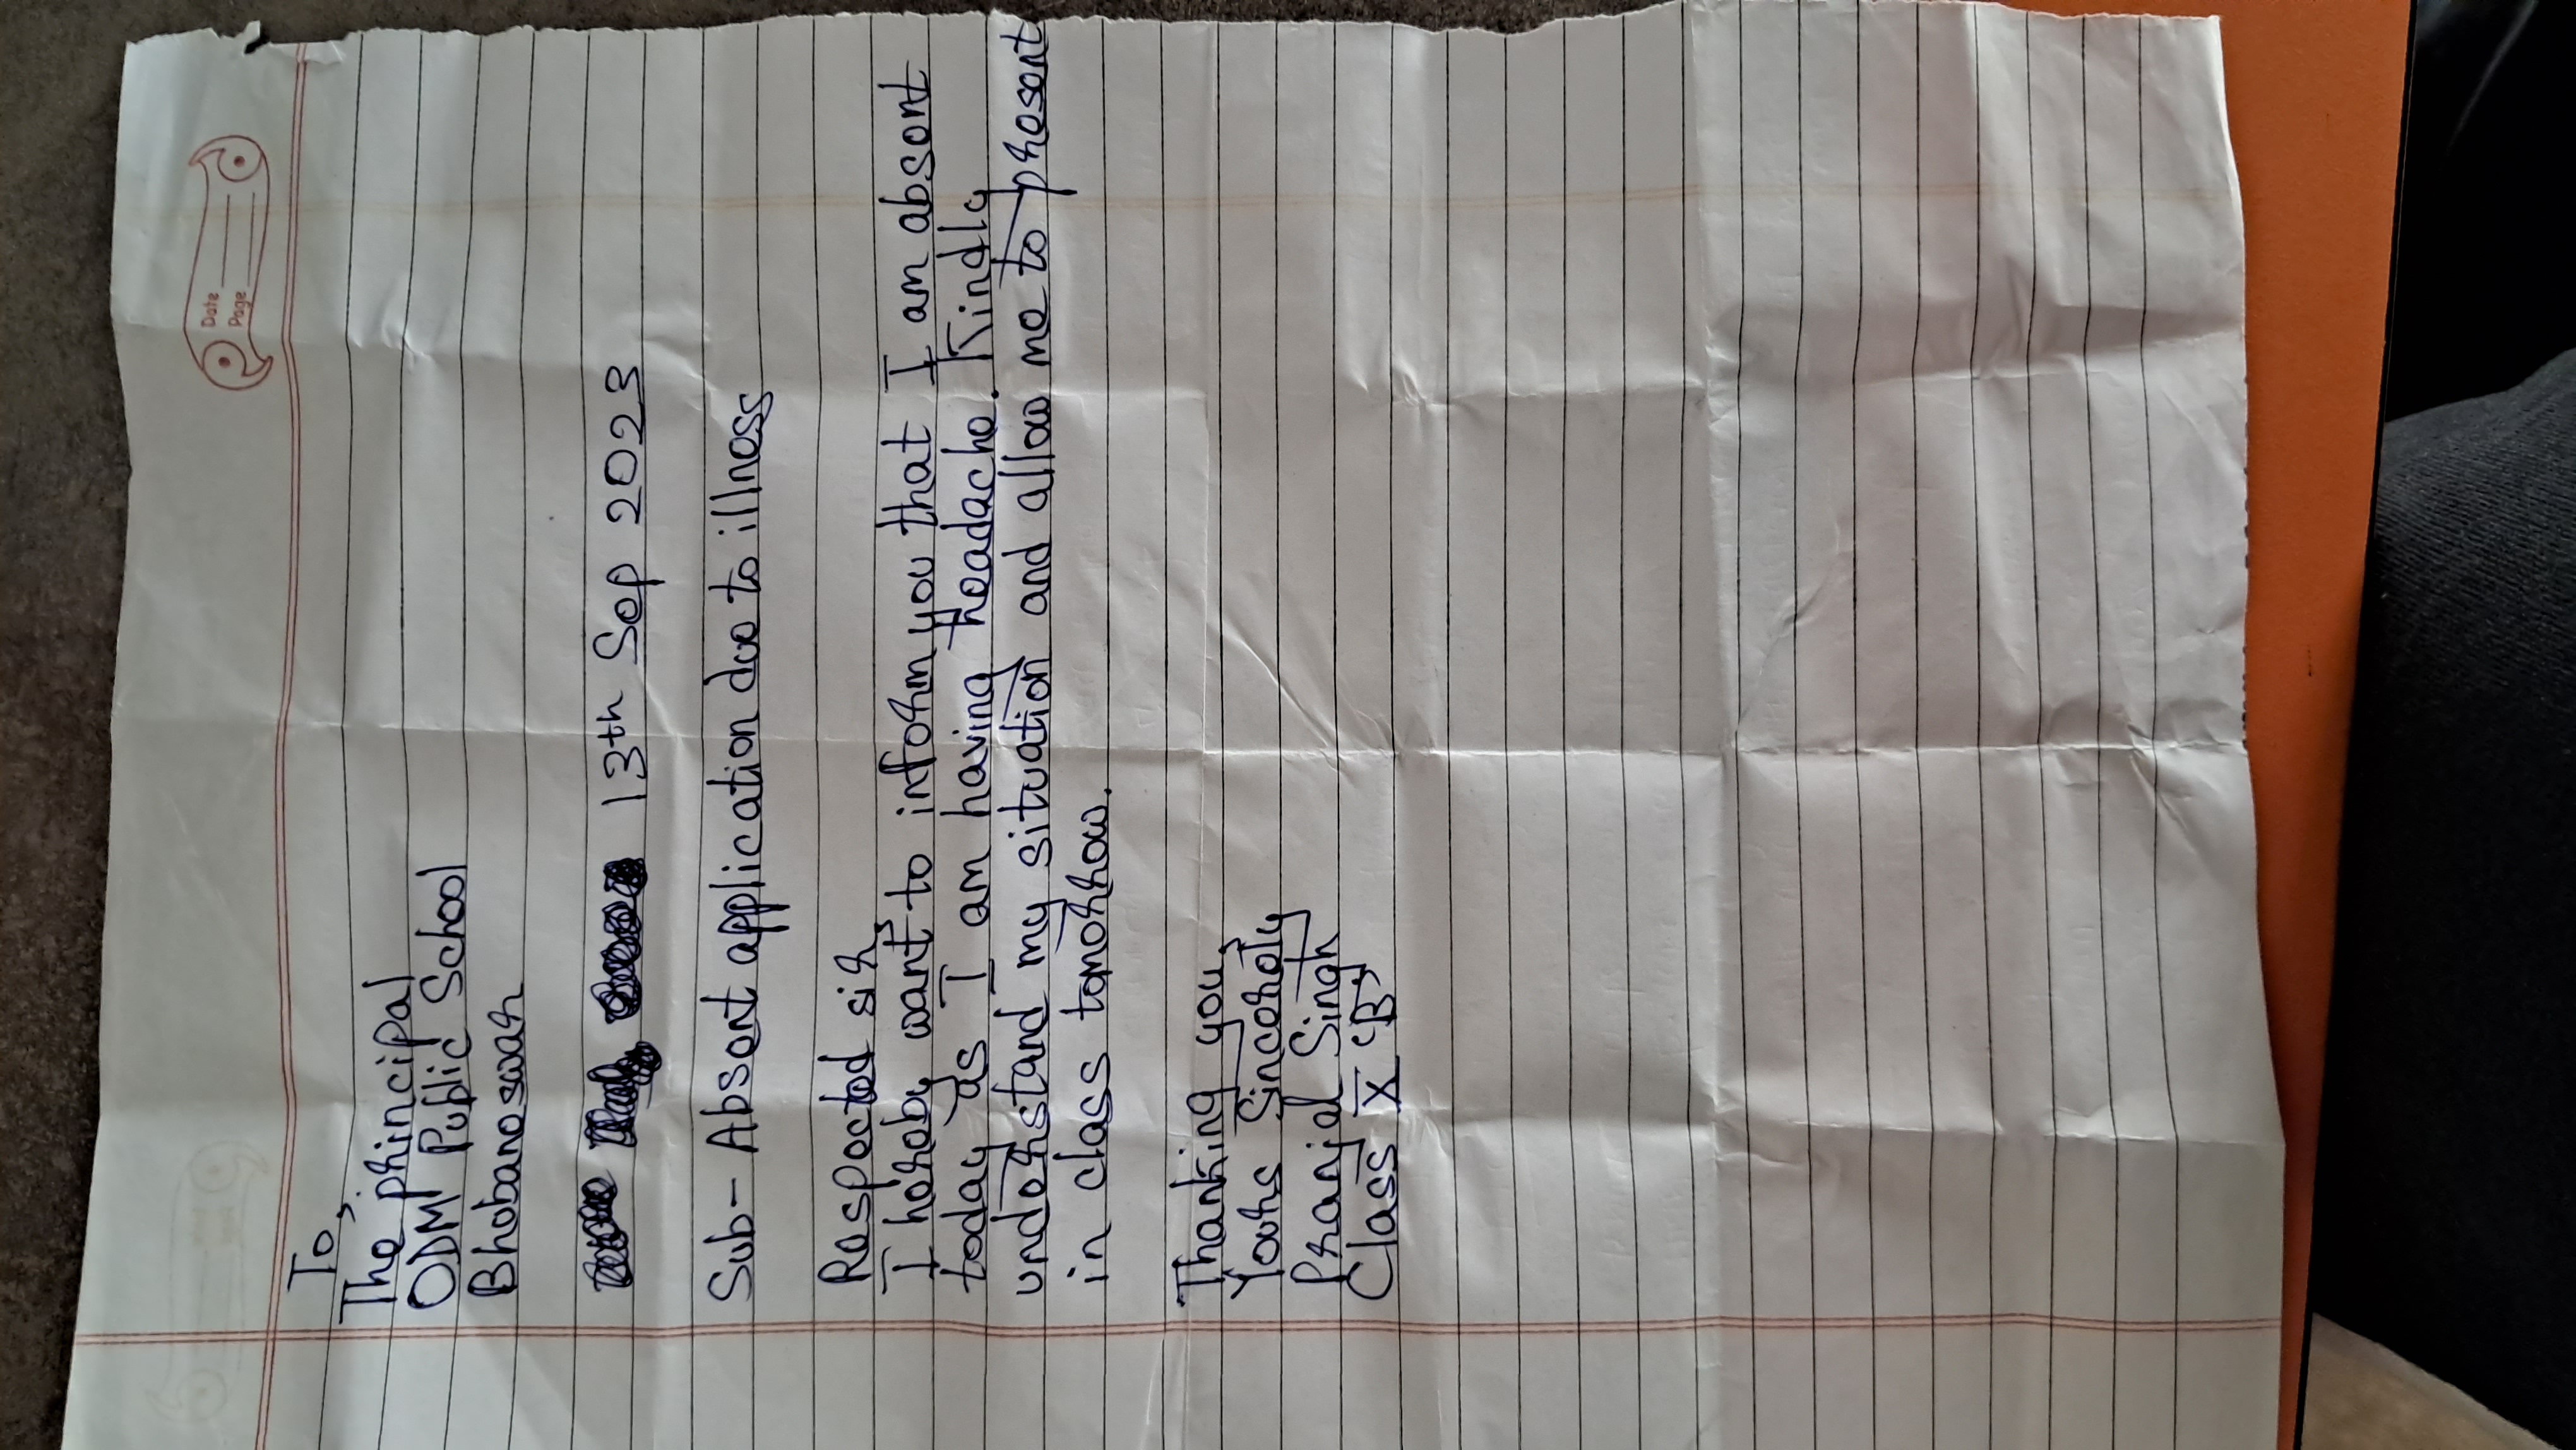 Date
Page
To,
The principal
ODM Public School
Bhubaneswar
13th Sep 2023
Sub- Absent application due to illness
Respected sir,
I hereby want to inform you that I am absent
today as I am having headache. Kindly
understand my situation and allow me to present
in class tomorrow.
Thanking you,
Yours Sincerely
Pranjal Singh
Class X 'B'